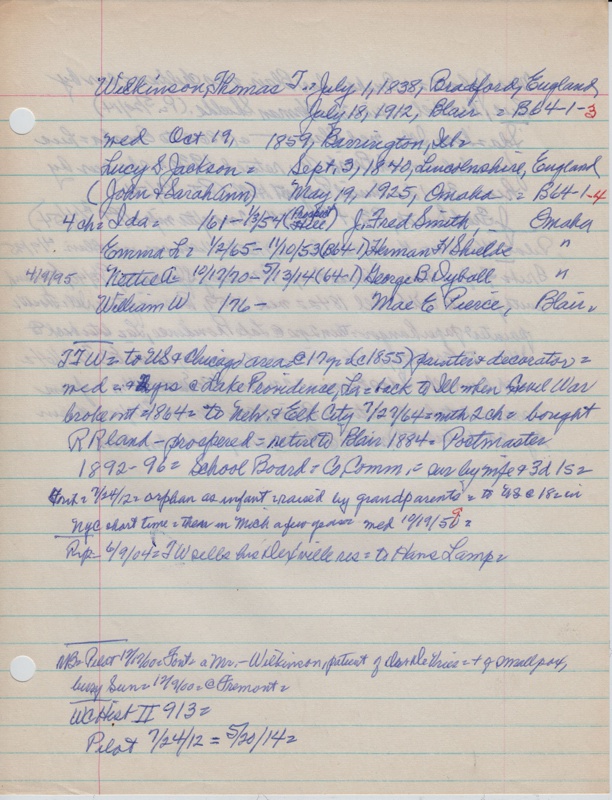 Wilkinson, Thomas T. = July 1, 1838, Bradford, England
July 18, 1912, Blair = B64-1-3
med Oct 19, 1859, Barrington, Ill =
Lucy S Jackson = Sept. 3, 1840, Lincolnshire, England
(John & Sarah Ann) May 19, 1925, Omaha = B64-1-4
4 ch = Ida = '61 - 1/3/54 (Prospect Hill) J. Fred Smith, Omaha
Emma L = 1/2/65 - 11/10/53 (B64-1) Herman F. Shields "
4/9/95 Nettie A = 10/17/70 - 5/13/14 (64-1) George B. Dyball "
William W '76 - Mae E Pierce, Blair =
TTW = to US & Chicago area @ 17 yrs (c1855) painter & decorator =
med = & 2 yrs @ Lake Providence, La = back to Ill when Civil War
broke out = 1864 = to Neb. & Elk City 7/27/64 = with 2 ch = bought
R R land - prospered = retire to Blair 1884 = Postmaster
1892-96 = School Board = Co. Comm. = sur by wife & 3 d 1 s =
7/24/12 = orphan as infant = raised by grandparents = to US @ 18 = in
NYC short time = then in Mich a few years med 10/19/59 =
Rep - 6/9/04 = TW sells his res = to Hans Lamp =
NB = Pilot 12/19/60 = Font = a Mr. - Wilkinson, patient of Vries = + of smallpox,
bury Sun = 12/9/60 = @ Fremont =
WC Hist II 913 =
Pilot 7/24/12 = 5/20/14 =